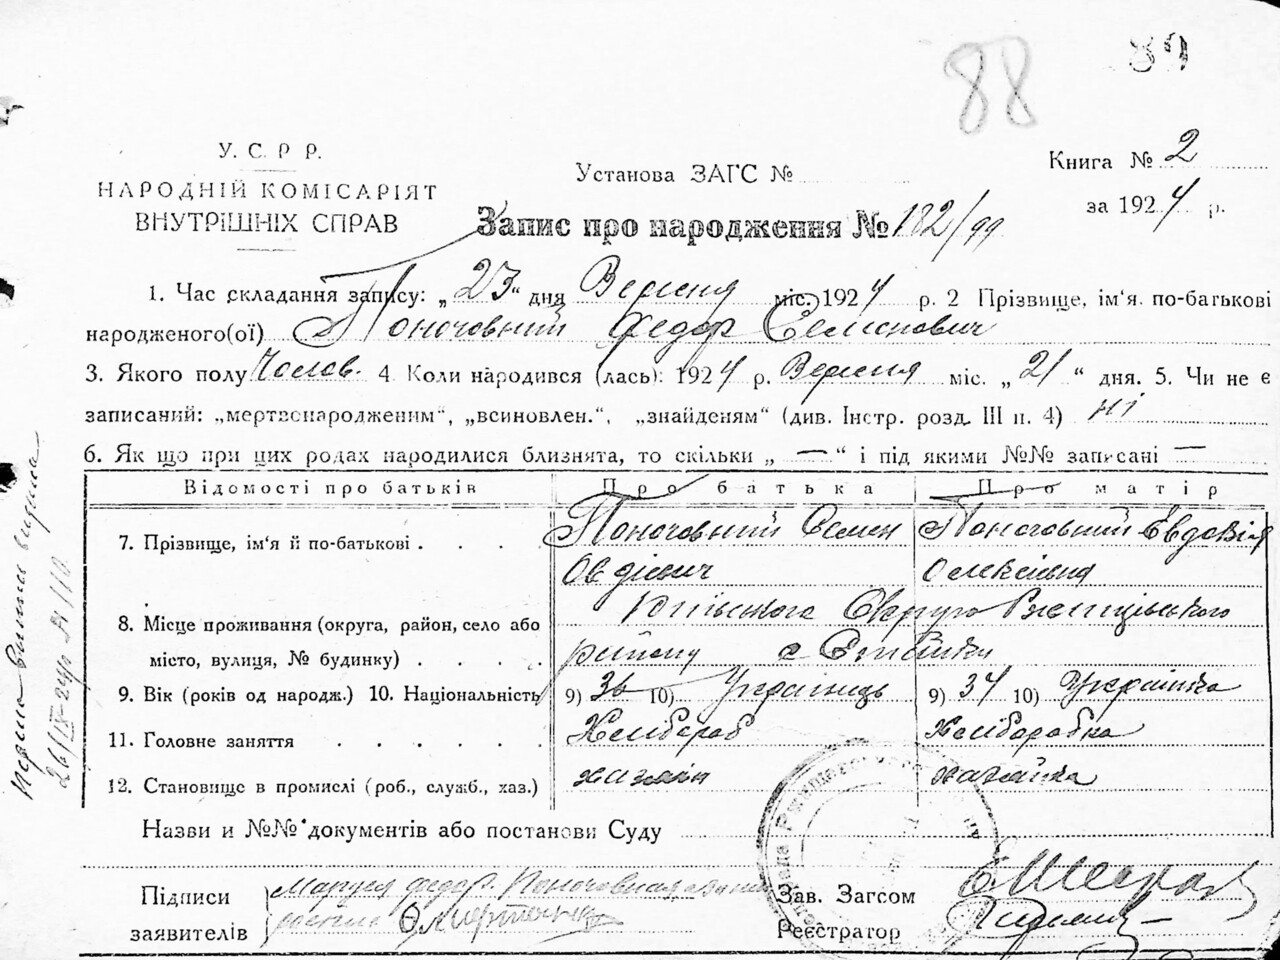 88
89
У. С. Р. Р.
НАРОДНІЙ КОМІСАРІЯТ
ВНУТРІШНІХ СПРАВ
Установа ЗАГС №
Книга № 2
за 1924 р.
Запис про народження № 182/99
1. Час складання запису: „23" дня Вересня міс. 1924 р. 2 Прізвище, ім'я. по-батькові
народженого(ої) Поночовний Федор Семенович
3. Якого полу Чолов. 4. Коли народився (лась): 1924 р. Вересня міс. „21" дня. 5. Чи не є
записаний: „мертвонародженим", „всиновлен.", „знайденям" (див. Інстр. розд. III п. 4) ні
6. Як що при цих родах народилися близнята, то скільки „ — " і під якими №№ записані —
Відомості про батьків Про батька Про матір
7. Прізвище, ім'я й по-батькові . . . . Поночовний Семен Поночовний Євдокія
Овдієвич Олексіївна
Київського Округу Ржищівського
8. Місце проживання (округа, район, село або
місто, вулиця, № будинку) . . . . району с
9. Вік (років од народж.) 10. Національність 9) 36 10) Українець 9) 34 10) Українка
11. Головне заняття . . . . . . Хлібороб Хліборобка
12. Становище в промислі (роб., служб., хаз.) хазяїн хазяйка
Назви и №№ документів або постанови Суду
Підписи
заявителів
Маруся Федор. Поночовная
Зав. Загсом
Реєстратор
26/IX-24р № 110